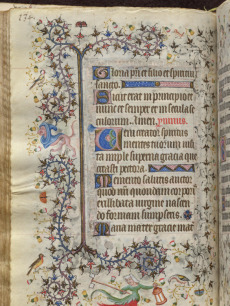 174
Gloria pri et filio et spiritui
sancto.
Sicut erat in principio et
nunc et semper et in secula se
culorum. Amen. ymnus.
Veni creator spiritus
mentes tuorum uisi
ta imple superna gracia que
creasti pectora.
Memento salutis auctor
quod nri quondam corpori
ex illibata uirgine nascen
do formam sumpseris.
Maria mater gracie mat